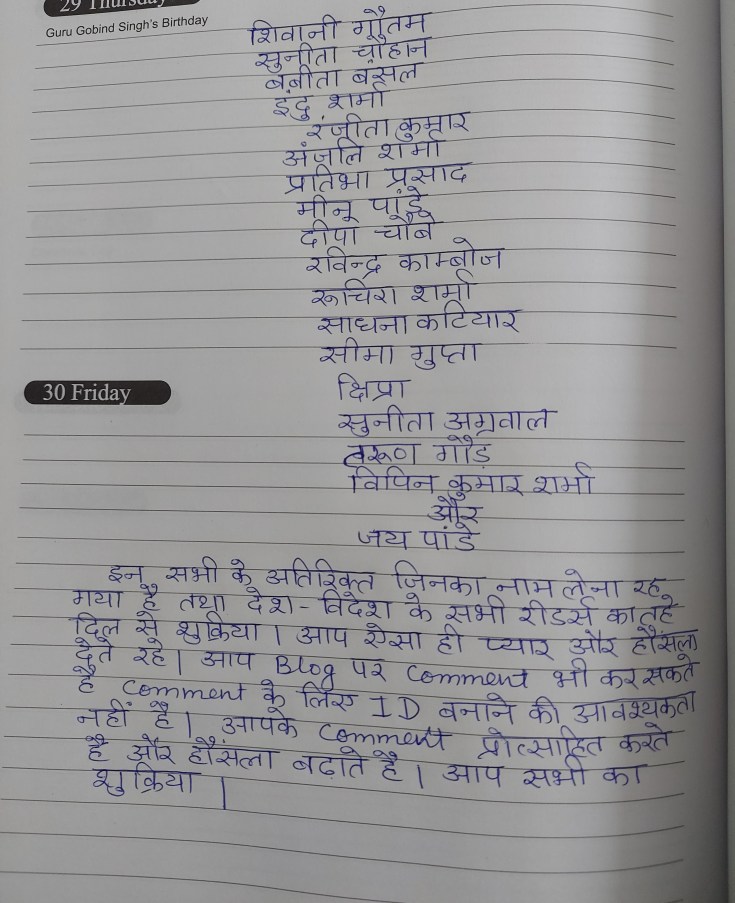 29 Thursday
Guru Gobind Singh's Birthday
शिवानी गौतम
सुनीता चौहान
बबीता बंसल
इंदु शर्मा
रंजीता कुमार
अंजलि शर्मा
प्रतिभा प्रसाद
मीनू पांडे
दीपा चौबे
रविन्द्र काम्बोज
रूचिरा शर्मा
साधना कटियार
सीमा गुप्ता
30 Friday
क्षिप्रा
सुनीता अग्रवाल
वरूण गौड़
विपिन कुमार शर्मा
और
जय पांडे
इन सभी के अतिरिक्त जिनका नाम लेना रह
गया है तथा देश-विदेश के सभी रीडर्स का तहे
दिल से शुक्रिया। आप ऐसा ही प्यार और हौंसला
देते रहे। आप Blog पर comment भी कर सकते
है comment के लिए ID बनाने की आवश्यकता
नहीं है। आपके comment प्रोत्साहित करते
है और हौंसला बढ़ाते है। आप सभी का
शुक्रिया।